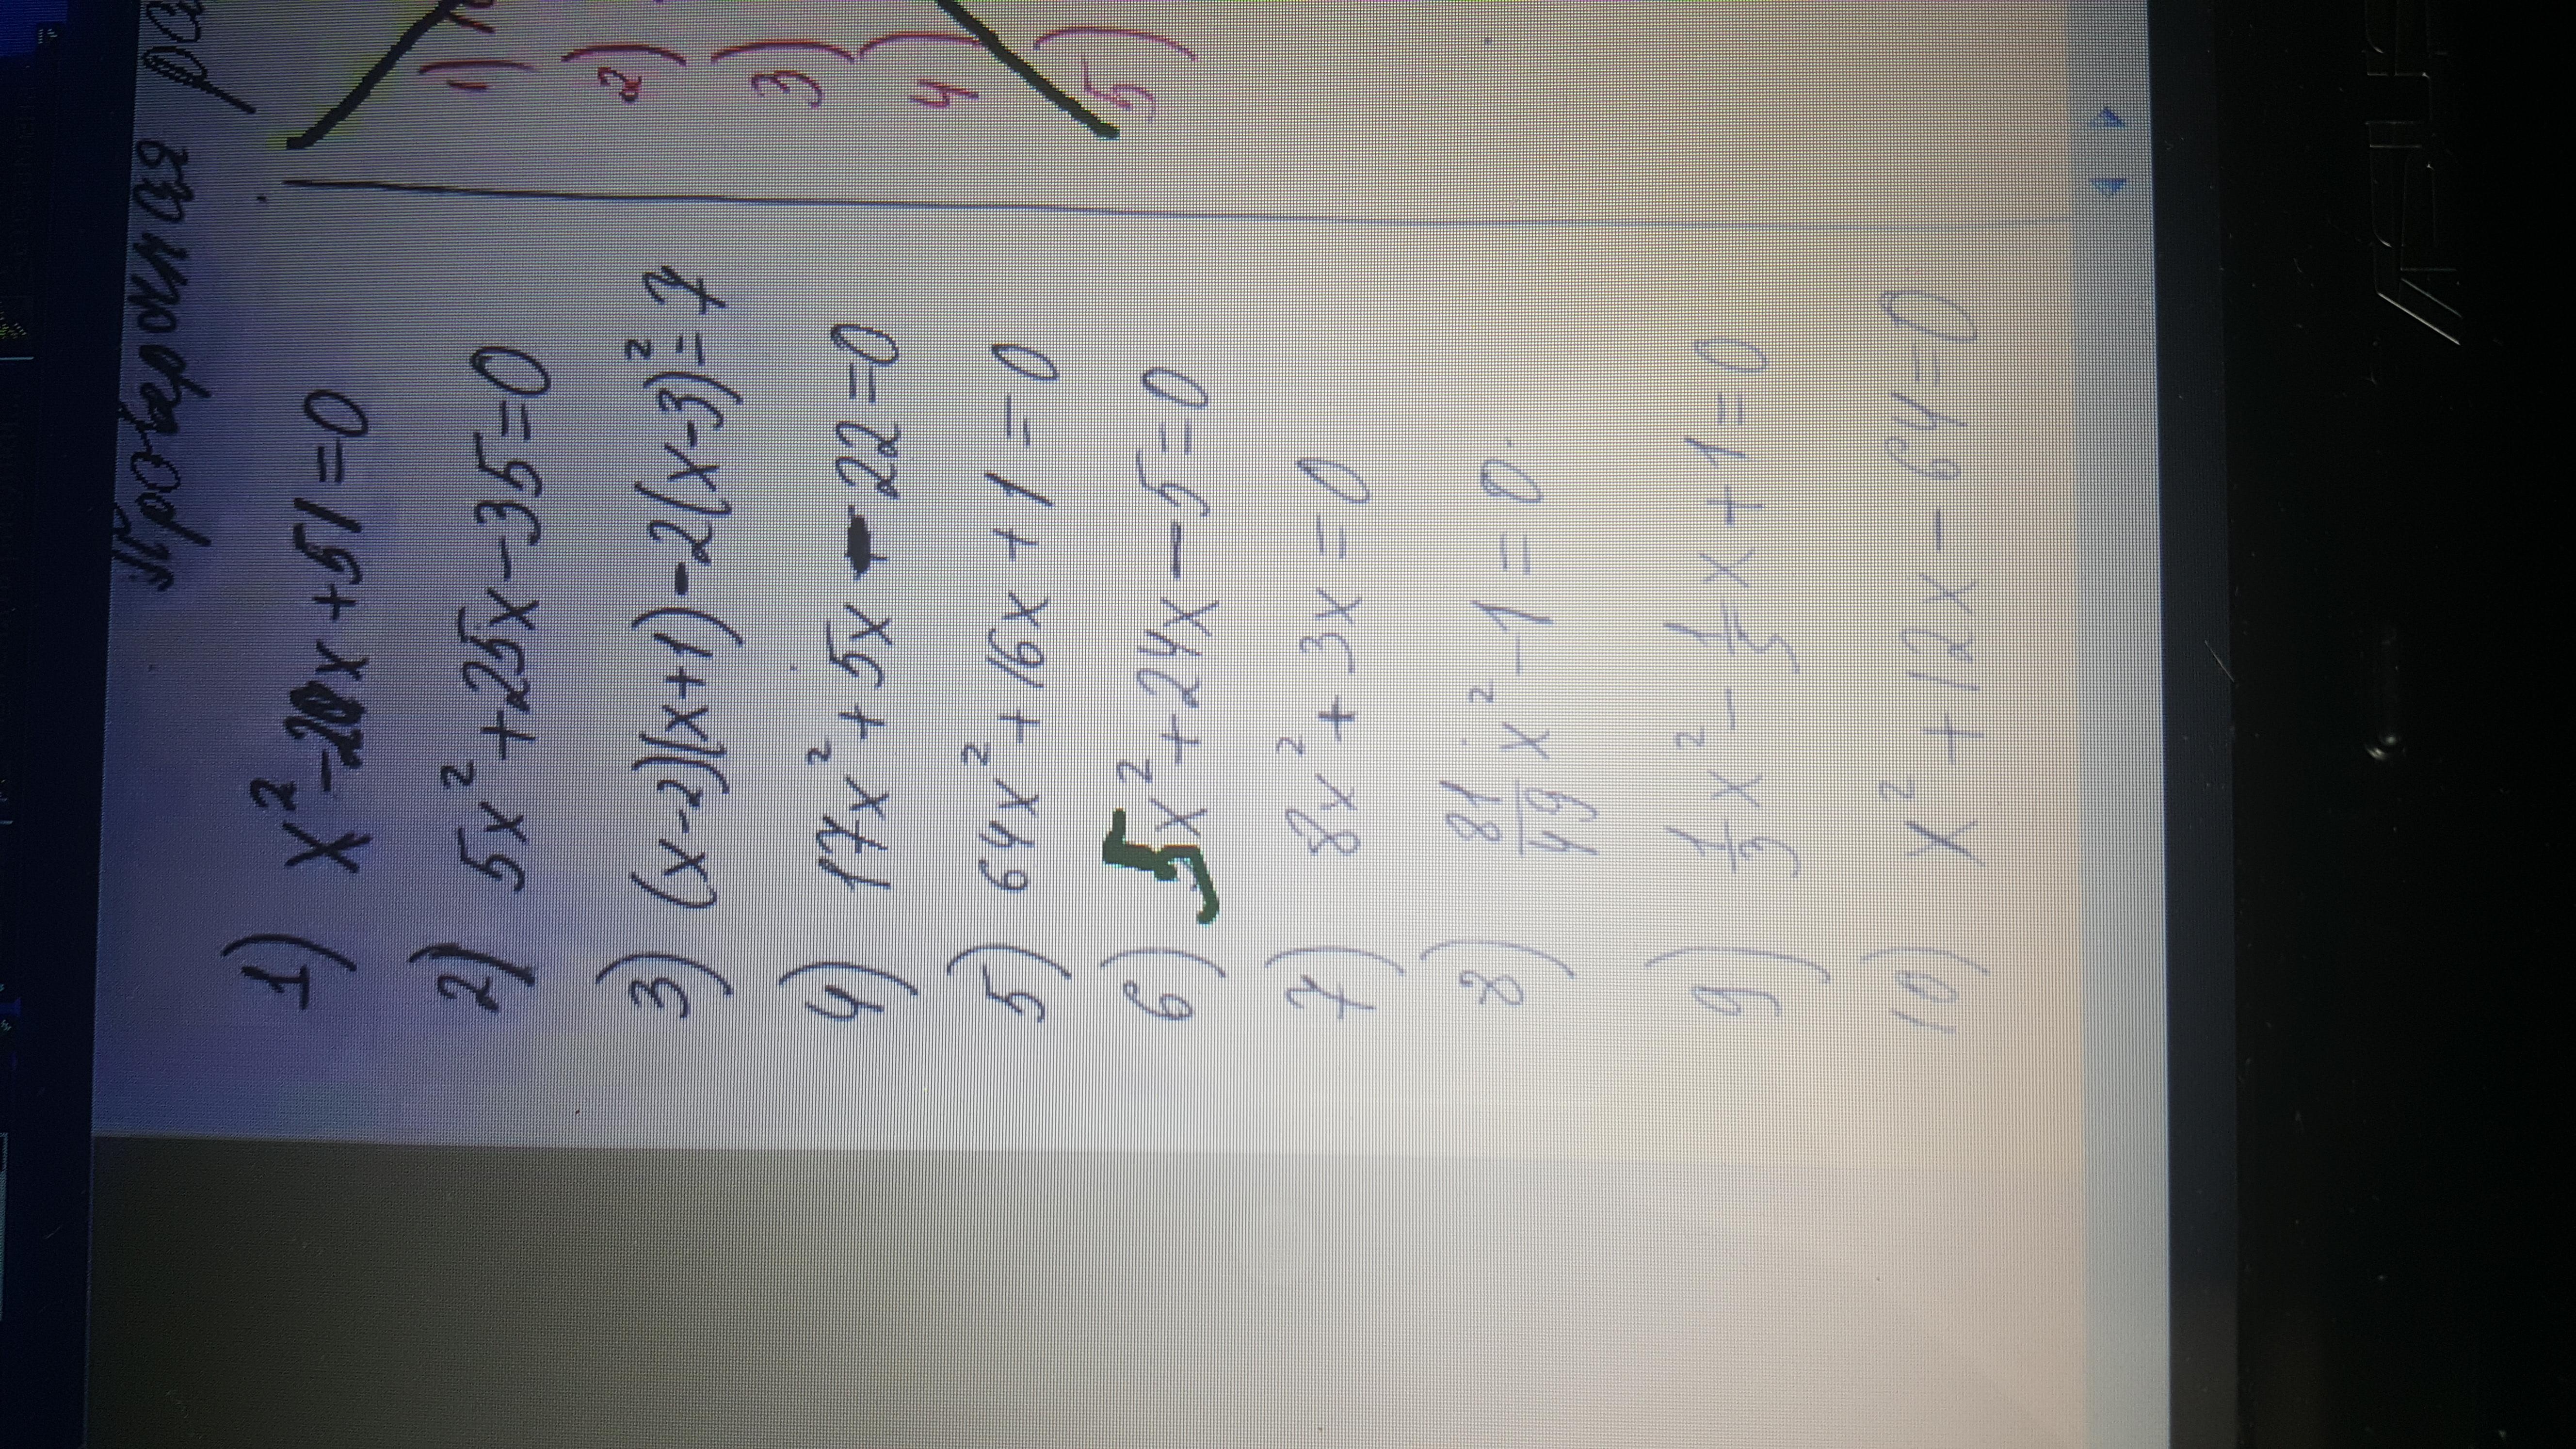 Проверочная
1) x² - 20x + 51 = 0
2) 5x² + 25x - 35 = 0
3) (x-2)(x+1) - 2(x-3)² = 7
4) 17x² + 5x - 22 = 0
5) 64x² + 16x + 1 = 0
6) 5x² + 24x - 5 = 0
7) 8x² + 3x = 0
8) 81/49 x² - 1 = 0.
9) 1/3 x² - 1/5 x + 1 = 0
10) x² + 12x - 64 = 0
1)
2)
3)
4)
5)